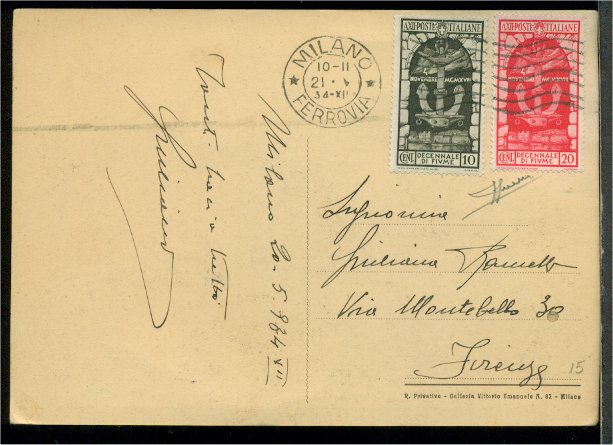 MILANO
10-11
21 · V
34-XII
FERROVIA
A.XII·POSTE ITALIANE
NOVEMBRE MCMXVIII
CENT. DECENNALE DI FIUME 10
A.XII·POSTE ITALIANE
NOVEMBRE MCMXVIII
CENT. DECENNALE DI FIUME 20
Milano 20.5.934 XII
Giuliana
Via Montebello 30
Firenze
15
R. Privativa - Galleria Vittorio Emanuele N. 82 - Milano